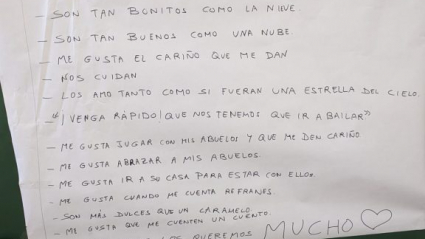 - SON TAN BONITOS COMO LA NIEVE.
- SON TAN BUENOS COMO UNA NUBE.
- ME GUSTA EL CARIÑO QUE ME DAN
- NOS CUIDAN
- LOS AMO TANTO COMO SI FUERAN UNA ESTRELLA DEL CIELO.
- "¡VENGA RÁPIDO! QUE NOS TENEMOS QUE IR A BAILAR"
- ME GUSTA JUGAR CON MIS ABUELOS Y QUE ME DEN CARIÑO.
- ME GUSTA ABRAZAR A MIS ABUELOS.
- ME GUSTA IR A SU CASA PARA ESTAR CON ELLOS.
- ME GUSTA CUANDO ME CUENTA REFRANES.
- SON MÁS DULCES QUE UN CARAMELO.
- ME GUSTA QUE ME CUENTEN UN CUENTO.
QUEREMOS MUCHO